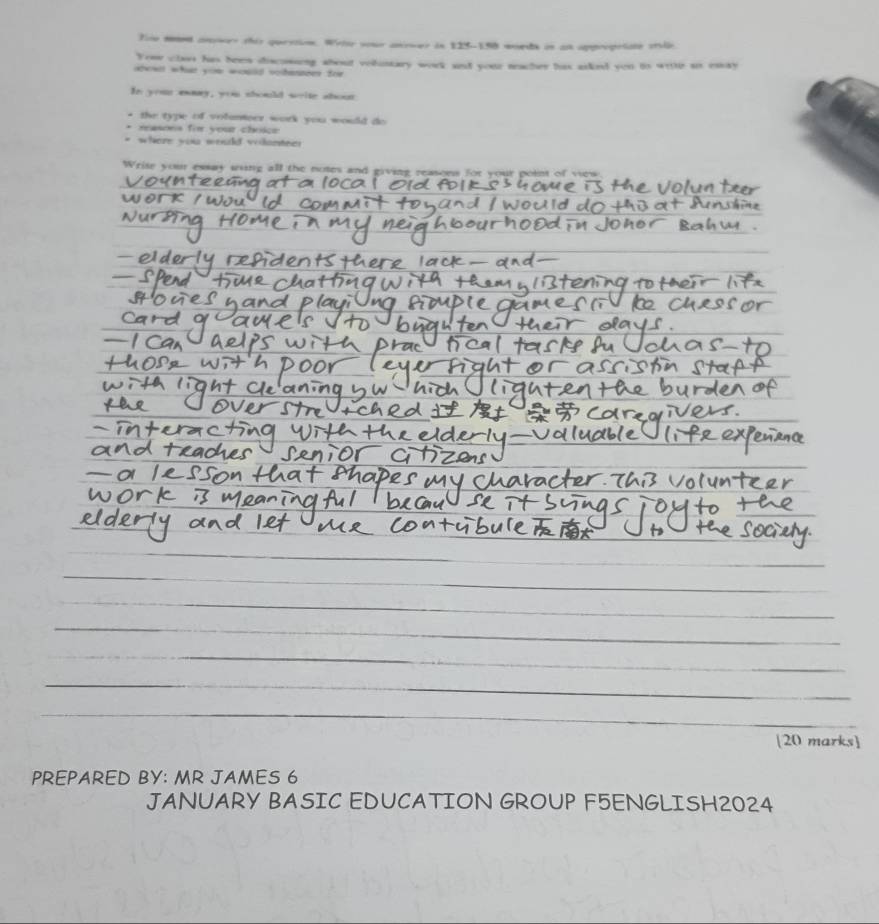 You must answer this question. Write your answer in 125-150 words in an appropriate style.
Your class has been discussing about voluntary work and your teacher has asked you to write an essay
about what you would volunteer for.
In your essay, you should write about:
• the type of volunteer work you would do
• reasons for your choice
• where you would volunteer
Write your essay using all the notes and giving reasons for your point of view.
volunteering at a local old folks's home is the volunteer
work I would commit to, and I would do this at Sunshine
Nursing Home in my neighbourhood in Johor Bahru.
- elderly residents there lack - and -
- spend time chatting with them, listening to their life
stories, and playing simple games like chess or
card games to brighten their days.
- I can helps with practical tasks such as - to
those with poor eyersight or assistin staff
with light cleaning, which lighten the burden of
the overstretched 过度 劳 caregivers.
- interacting with the elderly - valuable life experience
and teaches senior citizens
- a lesson that shapes my character. This volunteer
work is meaningful because it brings joy to the
elderly and let me contribute 献 to the society.
[20 marks]
PREPARED BY: MR JAMES 6
JANUARY BASIC EDUCATION GROUP F5ENGLISH2024